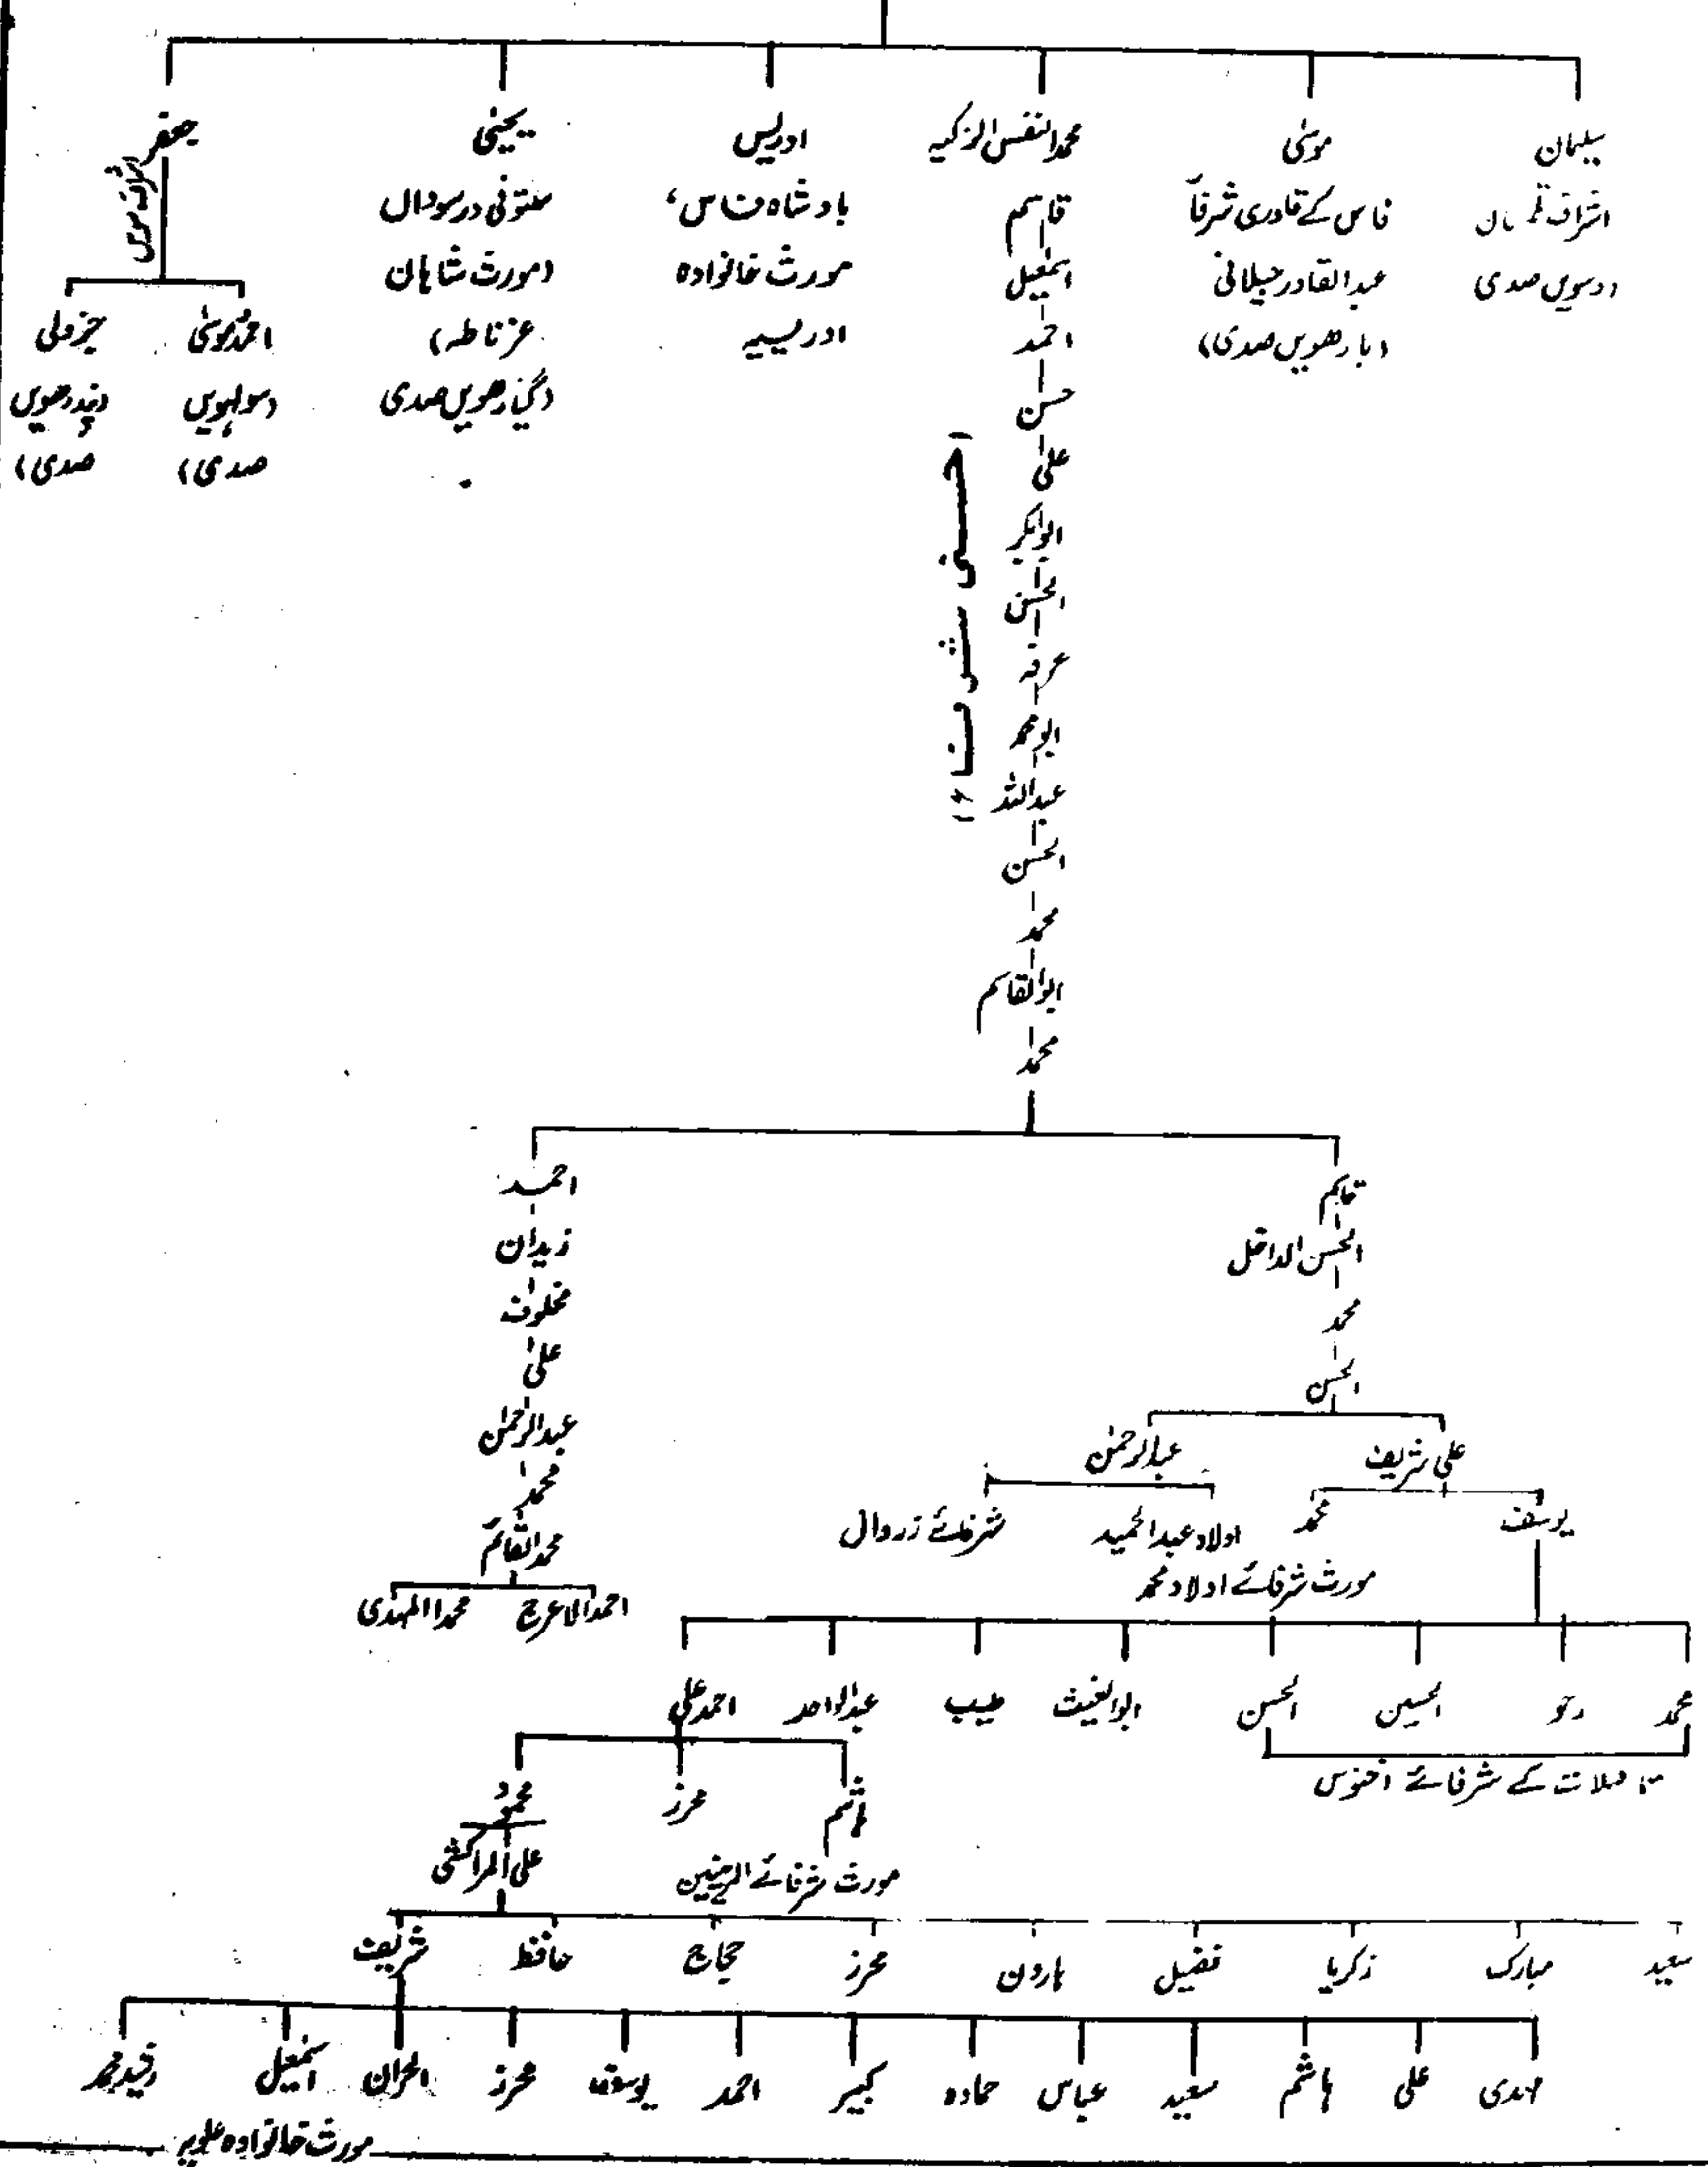 سلیمان
اشراف
دسویں صدی
موسیٰ
فاس کے قادری شرفا
عبدالقادر جیلانی
(بارھویں صدی)
محمد النفس الزکیہ
قاسم
اسمٰعیل
احمد
حسن
علی
ابوبکر
الحسن
عرفہ
ابو محمد
عبداللہ
الحسن
محمد
ابوالقاسم
محمد
حسنی شرفاء
ادریس
بادشاہ فاس،
مورث خانوادہ
ادریسیہ
یحییٰ
متوفی در سوڈان
(مورث شاہان
غرناطہ)
(گیارھویں صدی
جعفر
شرفائے سوس
احمد موسیٰ
(سولہویں
صدی)
جزولی
(پندرھویں
صدی)
قاسم
الحسن الداخل
محمد
الحسن
علی شریف
عبدالرحمٰن
یوسف
محمد
مورث شرفائے اولاد محمد
اولاد عبدالحمید
شرفائے زروال
احمد
زیدان
مخلوف
علی
عبدالرحمٰن
محمد
محمد القائم
احمد الاعرج
محمد المہدی
محمد
الحسین
الحسن
ابوالغیث
طیب
عبدالواحد
احمد علی
کے شرفائے اخنوس
ہاشم
محرز
محمود
مورث شرفائے
علی المراکشی
سعید
مبارک
زکریا
فضیل
ہارون
محرز
حجاج
حافظ
شریف
مہدی
علی
ہاشم
سعید
عباس
حمادہ
کبیر
احمد
یوسف
محرز
الحران
اسمٰعیل
رشید محمد
مورث خانوادہ علویہ